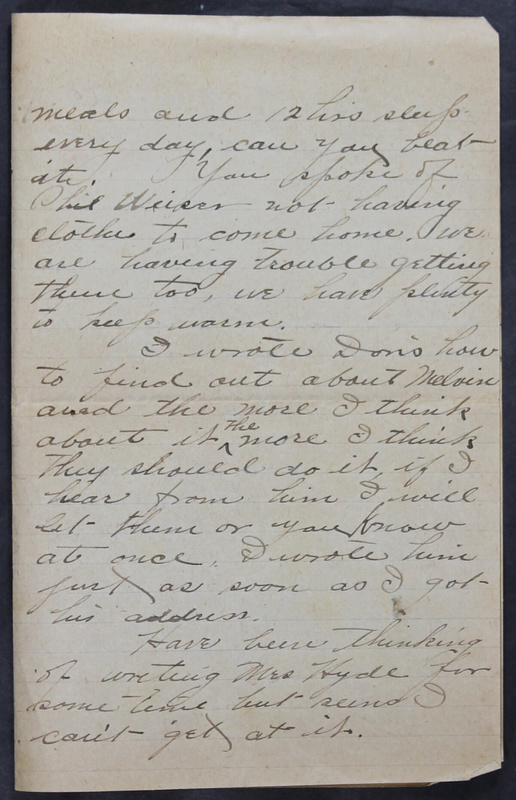 meals and 12 hrs sleep
every day, can you beat
it. You spoke of
Phil Weiser not having
clothes to come home. We
are having trouble getting
them too, we have plenty
to keep warm.
I wrote Doris how
to find out about Melvin
and the more I think
about it the more I think
they should do it, if I
hear from him I will
let them or you know
at once. I wrote him
just as soon as I got
his address.
Have been thinking
of writing Mrs Hyde for
some time but seems I
can't get at it.